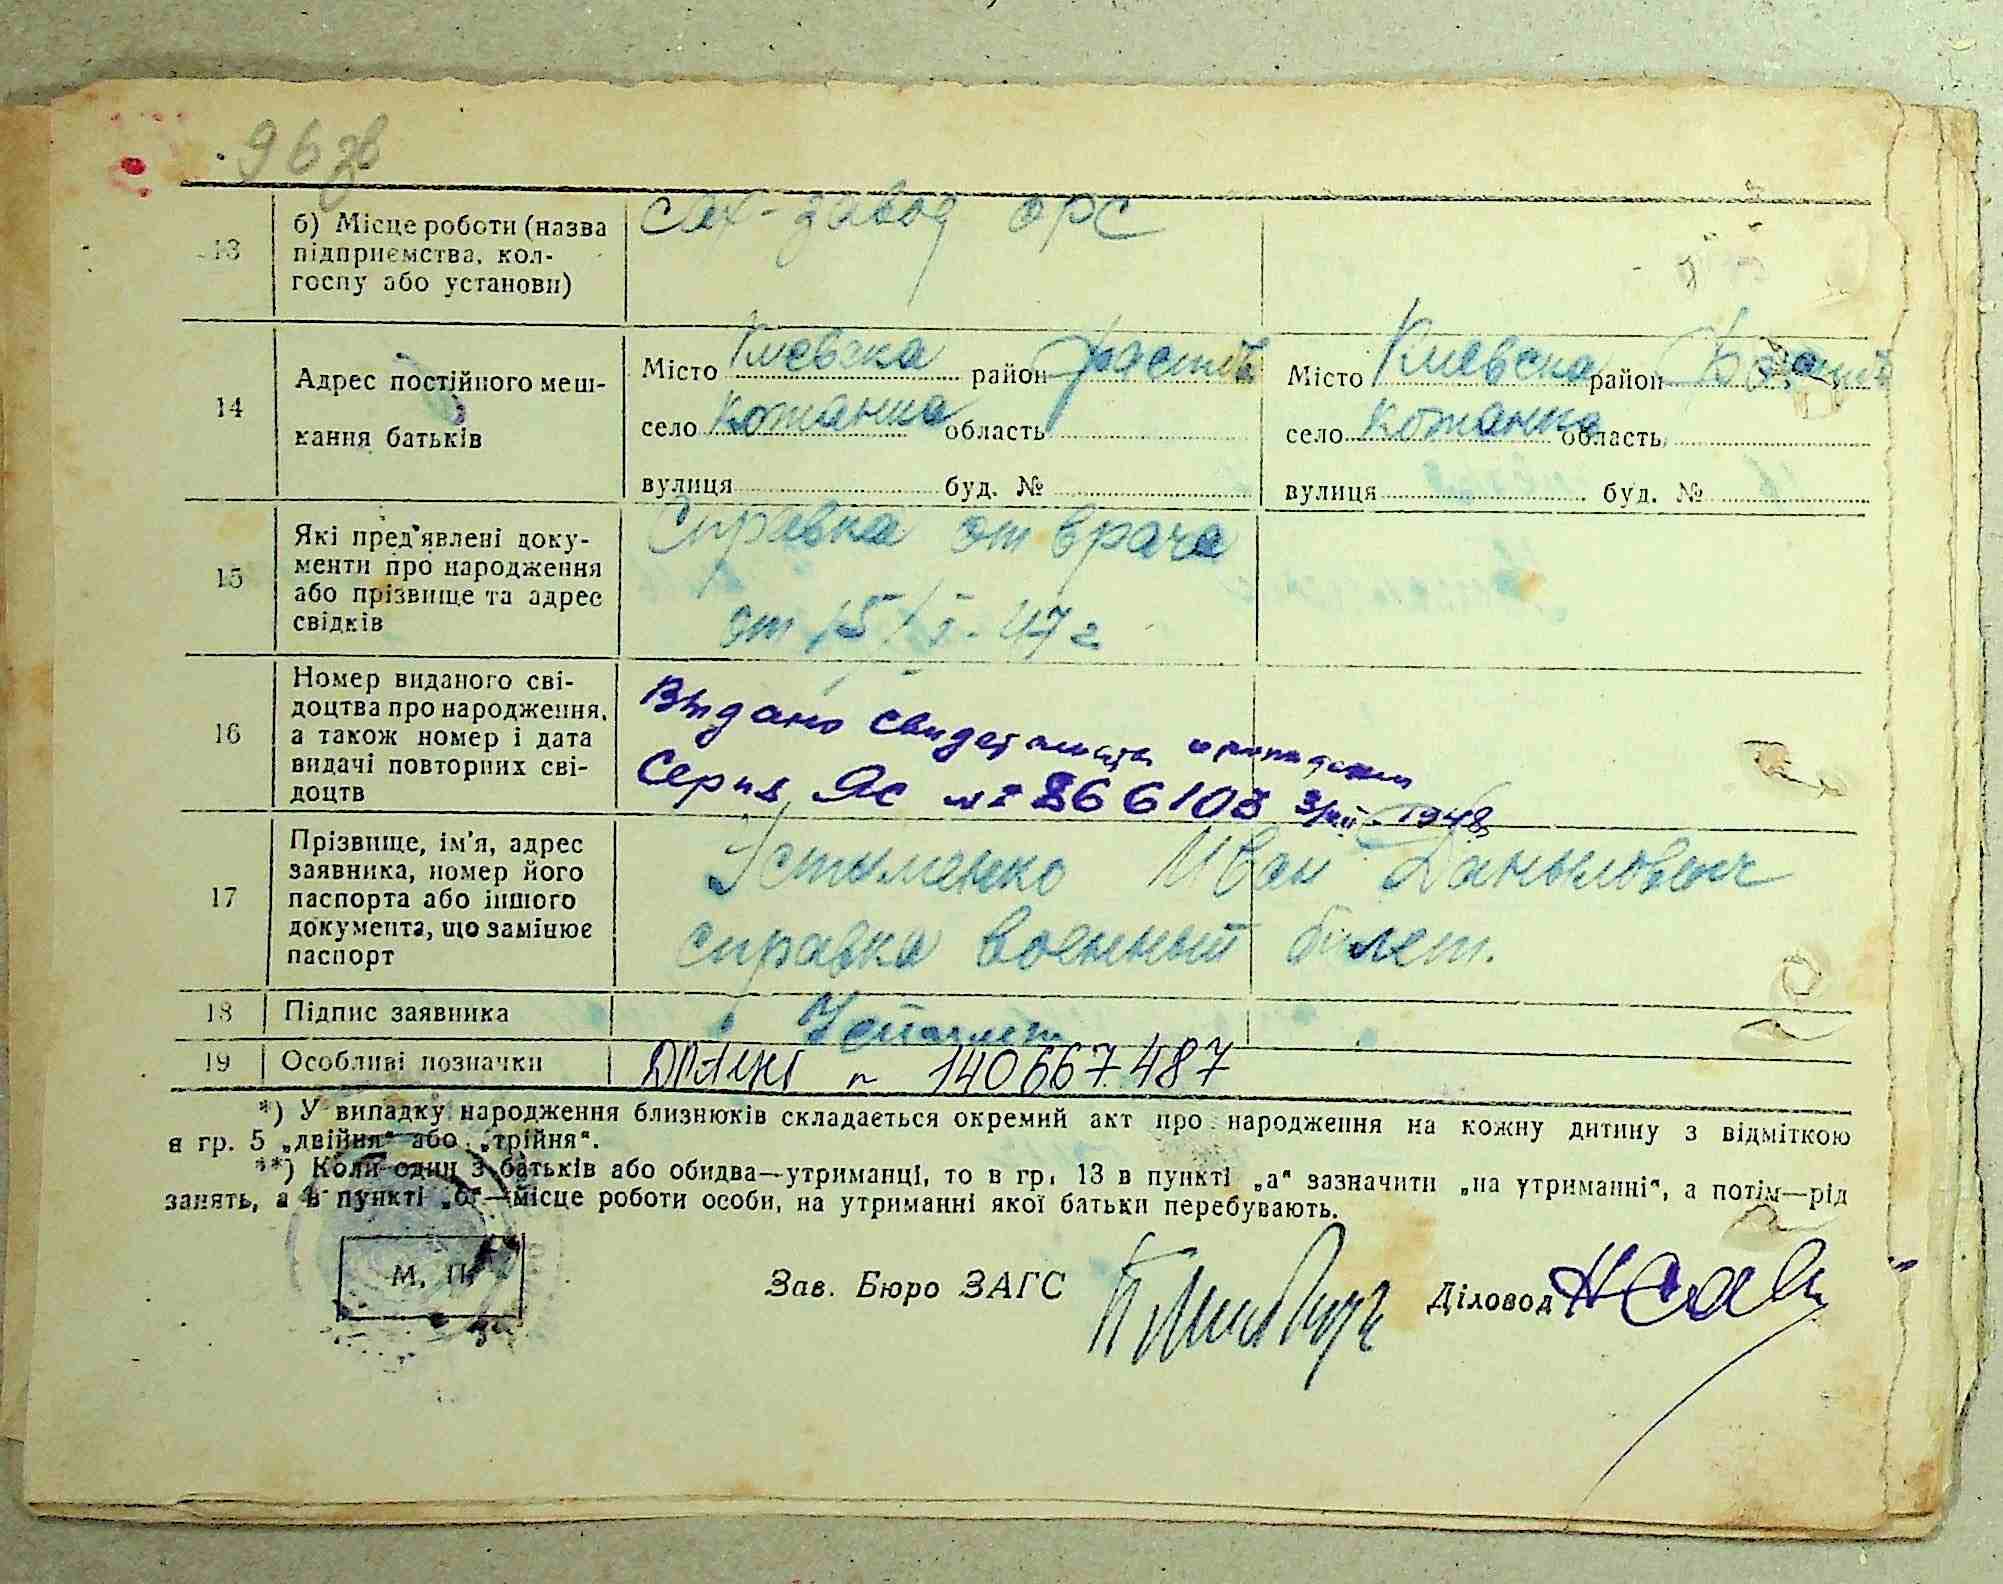 96 зв
13
б) Місце роботи (назва
підприємства, кол-
госпу або установи)
Сах-завод ОРС
14
Адрес постійного меш-
кання батьків
Місто Киевска район Фастів
село Кожанка область
вулиця буд. №
Місто Киевска район
село Кожанка область
вулиця буд. №
15
Які пред'явлені доку-
менти про народження
або прізвище та адрес
свідків
Справка от врача
от 15/I-47 г
16
Номер виданого сві-
доцтва про народження,
а також номер і дата
видачі повторних сві-
доцтв
Видано
Серия ЯС № 866108 1948
17
Прізвище, ім'я, адрес
заявника, номер його
паспорта або іншого
документа, що замінює
паспорт
Устыменко Иван Данылович
справка военный билет.
18
Підпис заявника
19
Особливі позначки
140667487
*) У випадку народження близнюків складається окремий акт про народження на кожну дитину з відміткою
в гр. 5 „двійня“ або „трійня“.
**) Коли один з батьків або обидва—утриманці, то в гр. 13 в пункті „а“ зазначити „на утриманні“, а потім—рід
занять, а в пункті „б“—місце роботи особи, на утриманні якої батьки перебувають.
М. П.
Зав. Бюро ЗАГС
Діловод